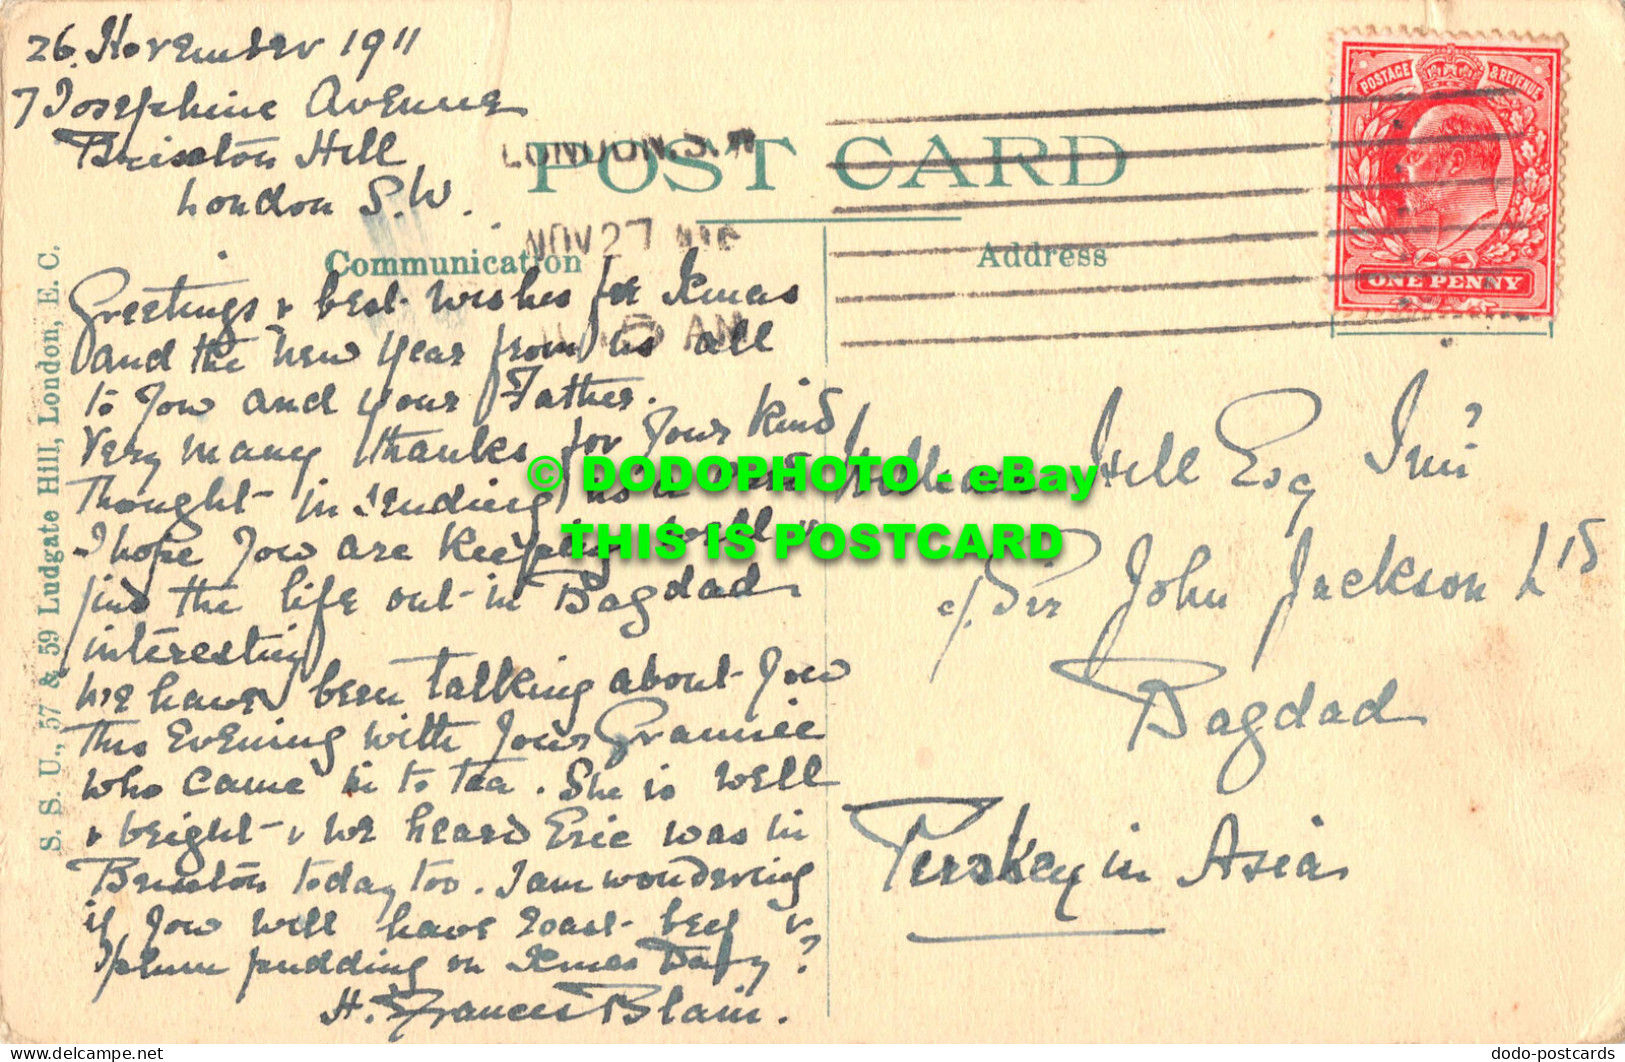 26. November 1911
7 Josephine Avenue
Brixton Hill
London S.W.
POST CARD
LONDON. S.W
NOV 27
Communication
Address
POSTAGE & REVENUE
ONE PENNY
Greetings & best wishes for Xmas
and the New Year from us all
to you and your Father.
Very many thanks for your kind
thought in sending us a card
I hope you are keeping well &
find the life out in Bagdad
interesting
We have been talking about you
this Evening with your Grannie
who came in to tea. She is well
& bright & we heard Eric was in
Brixton today too. I am wondering
if you will have roast beef &
plum pudding on Xmas Day?
H. Frances Blain.
Hill Esq Junr
c/o Sir John Jackson Ltd
Bagdad
Turkey in Asia
S. S. U., 57 & 59 Ludgate Hill, London, E. C.
© DODOPHOTO - eBay
THIS IS POSTCARD
www.delcampe.net
dodo-postcards